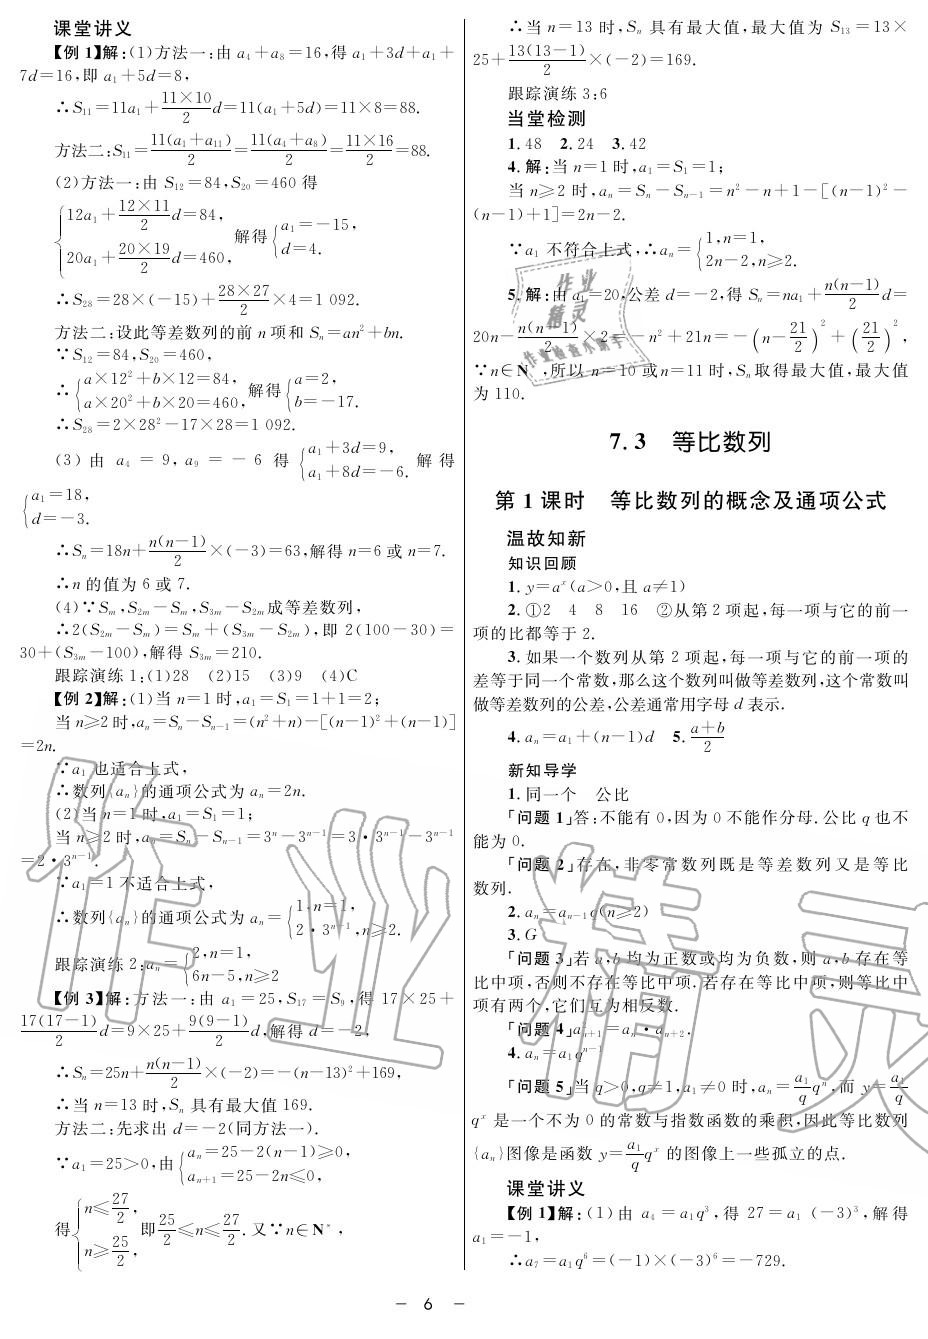 课堂讲义
【例 1】解:(1)方法一:由 a₄+a₈=16,得 a₁+3d+a₁+
7d=16,即 a₁+5d=8,
∴S₁₁=11a₁+\frac{11×10}{2}d=11(a₁+5d)=11×8=88.
方法二:S₁₁=\frac{11(a₁+a₁₁)}{2}=\frac{11(a₄+a₈)}{2}=\frac{11×16}{2}=88.
(2)方法一:由 S₁₂=84,S₂₀=460 得
{12a₁+\frac{12×11}{2}d=84,
20a₁+\frac{20×19}{2}d=460, 解得{a₁=-15,
d=4.
∴S₂₈=28×(-15)+\frac{28×27}{2}×4=1 092.
方法二:设此等差数列的前 n 项和 Sₙ=an²+bn.
∵S₁₂=84,S₂₀=460,
∴{a×12²+b×12=84,
a×20²+b×20=460, 解得{a=2,
b=-17.
∴S₂₈=2×28²-17×28=1 092.
(3)由 a₄=9,a₉=-6 得{a₁+3d=9,
a₁+8d=-6. 解得
{a₁=18,
d=-3.
∴Sₙ=18n+\frac{n(n-1)}{2}×(-3)=63,解得 n=6 或 n=7.
∴n 的值为 6 或 7.
(4)∵Sₘ,S₂ₘ-Sₘ,S₃ₘ-S₂ₘ成等差数列,
∴2(S₂ₘ-Sₘ)=Sₘ+(S₃ₘ-S₂ₘ),即 2(100-30)=
30+(S₃ₘ-100),解得 S₃ₘ=210.
跟踪演练 1:(1)28 (2)15 (3)9 (4)C
【例 2】解:(1)当 n=1 时,a₁=S₁=1+1=2;
当 n≥2 时,aₙ=Sₙ-Sₙ₋₁=(n²+n)-[(n-1)²+(n-1)]
=2n.
∵a₁ 也适合上式,
∴数列{aₙ}的通项公式为 aₙ=2n.
(2)当 n=1 时,a₁=S₁=1;
当 n≥2 时,aₙ=Sₙ-Sₙ₋₁=3ⁿ-3ⁿ⁻¹=3·3ⁿ⁻¹-3ⁿ⁻¹
=2·3ⁿ⁻¹.
∵a₁=1 不适合上式,
∴数列{aₙ}的通项公式为 aₙ={1,n=1,
2·3ⁿ⁻¹,n≥2.
跟踪演练 2:aₙ={2,n=1,
6n-5,n≥2
【例 3】解:方法一:由 a₁=25,S₁₇=S₉,得 17×25+
\frac{17(17-1)}{2}d=9×25+\frac{9(9-1)}{2}d,解得 d=-2,
∴Sₙ=25n+\frac{n(n-1)}{2}×(-2)=-(n-13)²+169,
∴当 n=13 时,Sₙ 具有最大值 169.
方法二:先求出 d=-2(同方法一).
∵a₁=25>0,由{aₙ=25-2(n-1)≥0,
aₙ₊₁=25-2n≤0,
得{n≤\frac{27}{2},
n≥\frac{25}{2}, 即\frac{25}{2}≤n≤\frac{27}{2}.又∵n∈N*,
∴当 n=13 时,Sₙ 具有最大值,最大值为 S₁₃=13×
25+\frac{13(13-1)}{2}×(-2)=169.
跟踪演练 3:6
当堂检测
1.48 2.24 3.42
4.解:当 n=1 时,a₁=S₁=1;
当 n≥2 时,aₙ=Sₙ-Sₙ₋₁=n²-n+1-[(n-1)²-
(n-1)+1]=2n-2.
∵a₁ 不符合上式,∴aₙ={1,n=1,
2n-2,n≥2.
5.解:由 a₁=20,公差 d=-2,得 Sₙ=na₁+\frac{n(n-1)}{2}d=
20n-\frac{n(n-1)}{2}×2=-n²+21n=-(n-\frac{21}{2})²+(\frac{21}{2})²,
∵n∈N*,所以 n=10 或n=11 时,Sₙ取得最大值,最大值
为 110.
7.3 等比数列
第 1 课时 等比数列的概念及通项公式
温故知新
知识回顾
1.y=aˣ(a>0,且 a≠1)
2.①2 4 8 16 ②从第 2 项起,每一项与它的前一
项的比都等于 2.
3.如果一个数列从第 2 项起,每一项与它的前一项的
差等于同一个常数,那么这个数列叫做等差数列,这个常数叫
做等差数列的公差,公差通常用字母 d 表示.
4.aₙ=a₁+(n-1)d 5.\frac{a+b}{2}
新知导学
1.同一个 公比
「问题 1」答:不能有 0,因为 0 不能作分母.公比 q 也不
能为 0.
「问题 2」存在,非零常数列既是等差数列又是等比
数列.
2.aₙ=aₙ₋₁q(n≥2)
3.G
「问题 3」若 a,b 均为正数或均为负数,则 a,b 存在等
比中项,否则不存在等比中项.若存在等比中项,则等比中
项有两个,它们互为相反数.
「问题 4」a²ₙ₊₁=aₙ·aₙ₊₂.
4.aₙ=a₁qⁿ⁻¹
「问题 5」当 q>0,q≠1,a₁≠0 时,aₙ=\frac{a₁}{q}qⁿ,而 y=\frac{a₁}{q}
qˣ 是一个不为 0 的常数与指数函数的乘积,因此等比数列
{aₙ}图像是函数 y=\frac{a₁}{q}qˣ 的图像上一些孤立的点.
课堂讲义
【例 1】解:(1)由 a₄=a₁q³,得 27=a₁(-3)³,解得
a₁=-1,
∴a₇=a₁q⁶=(-1)×(-3)⁶=-729.
- 6 -
作业精灵
作业
精灵
作业检查小帮手